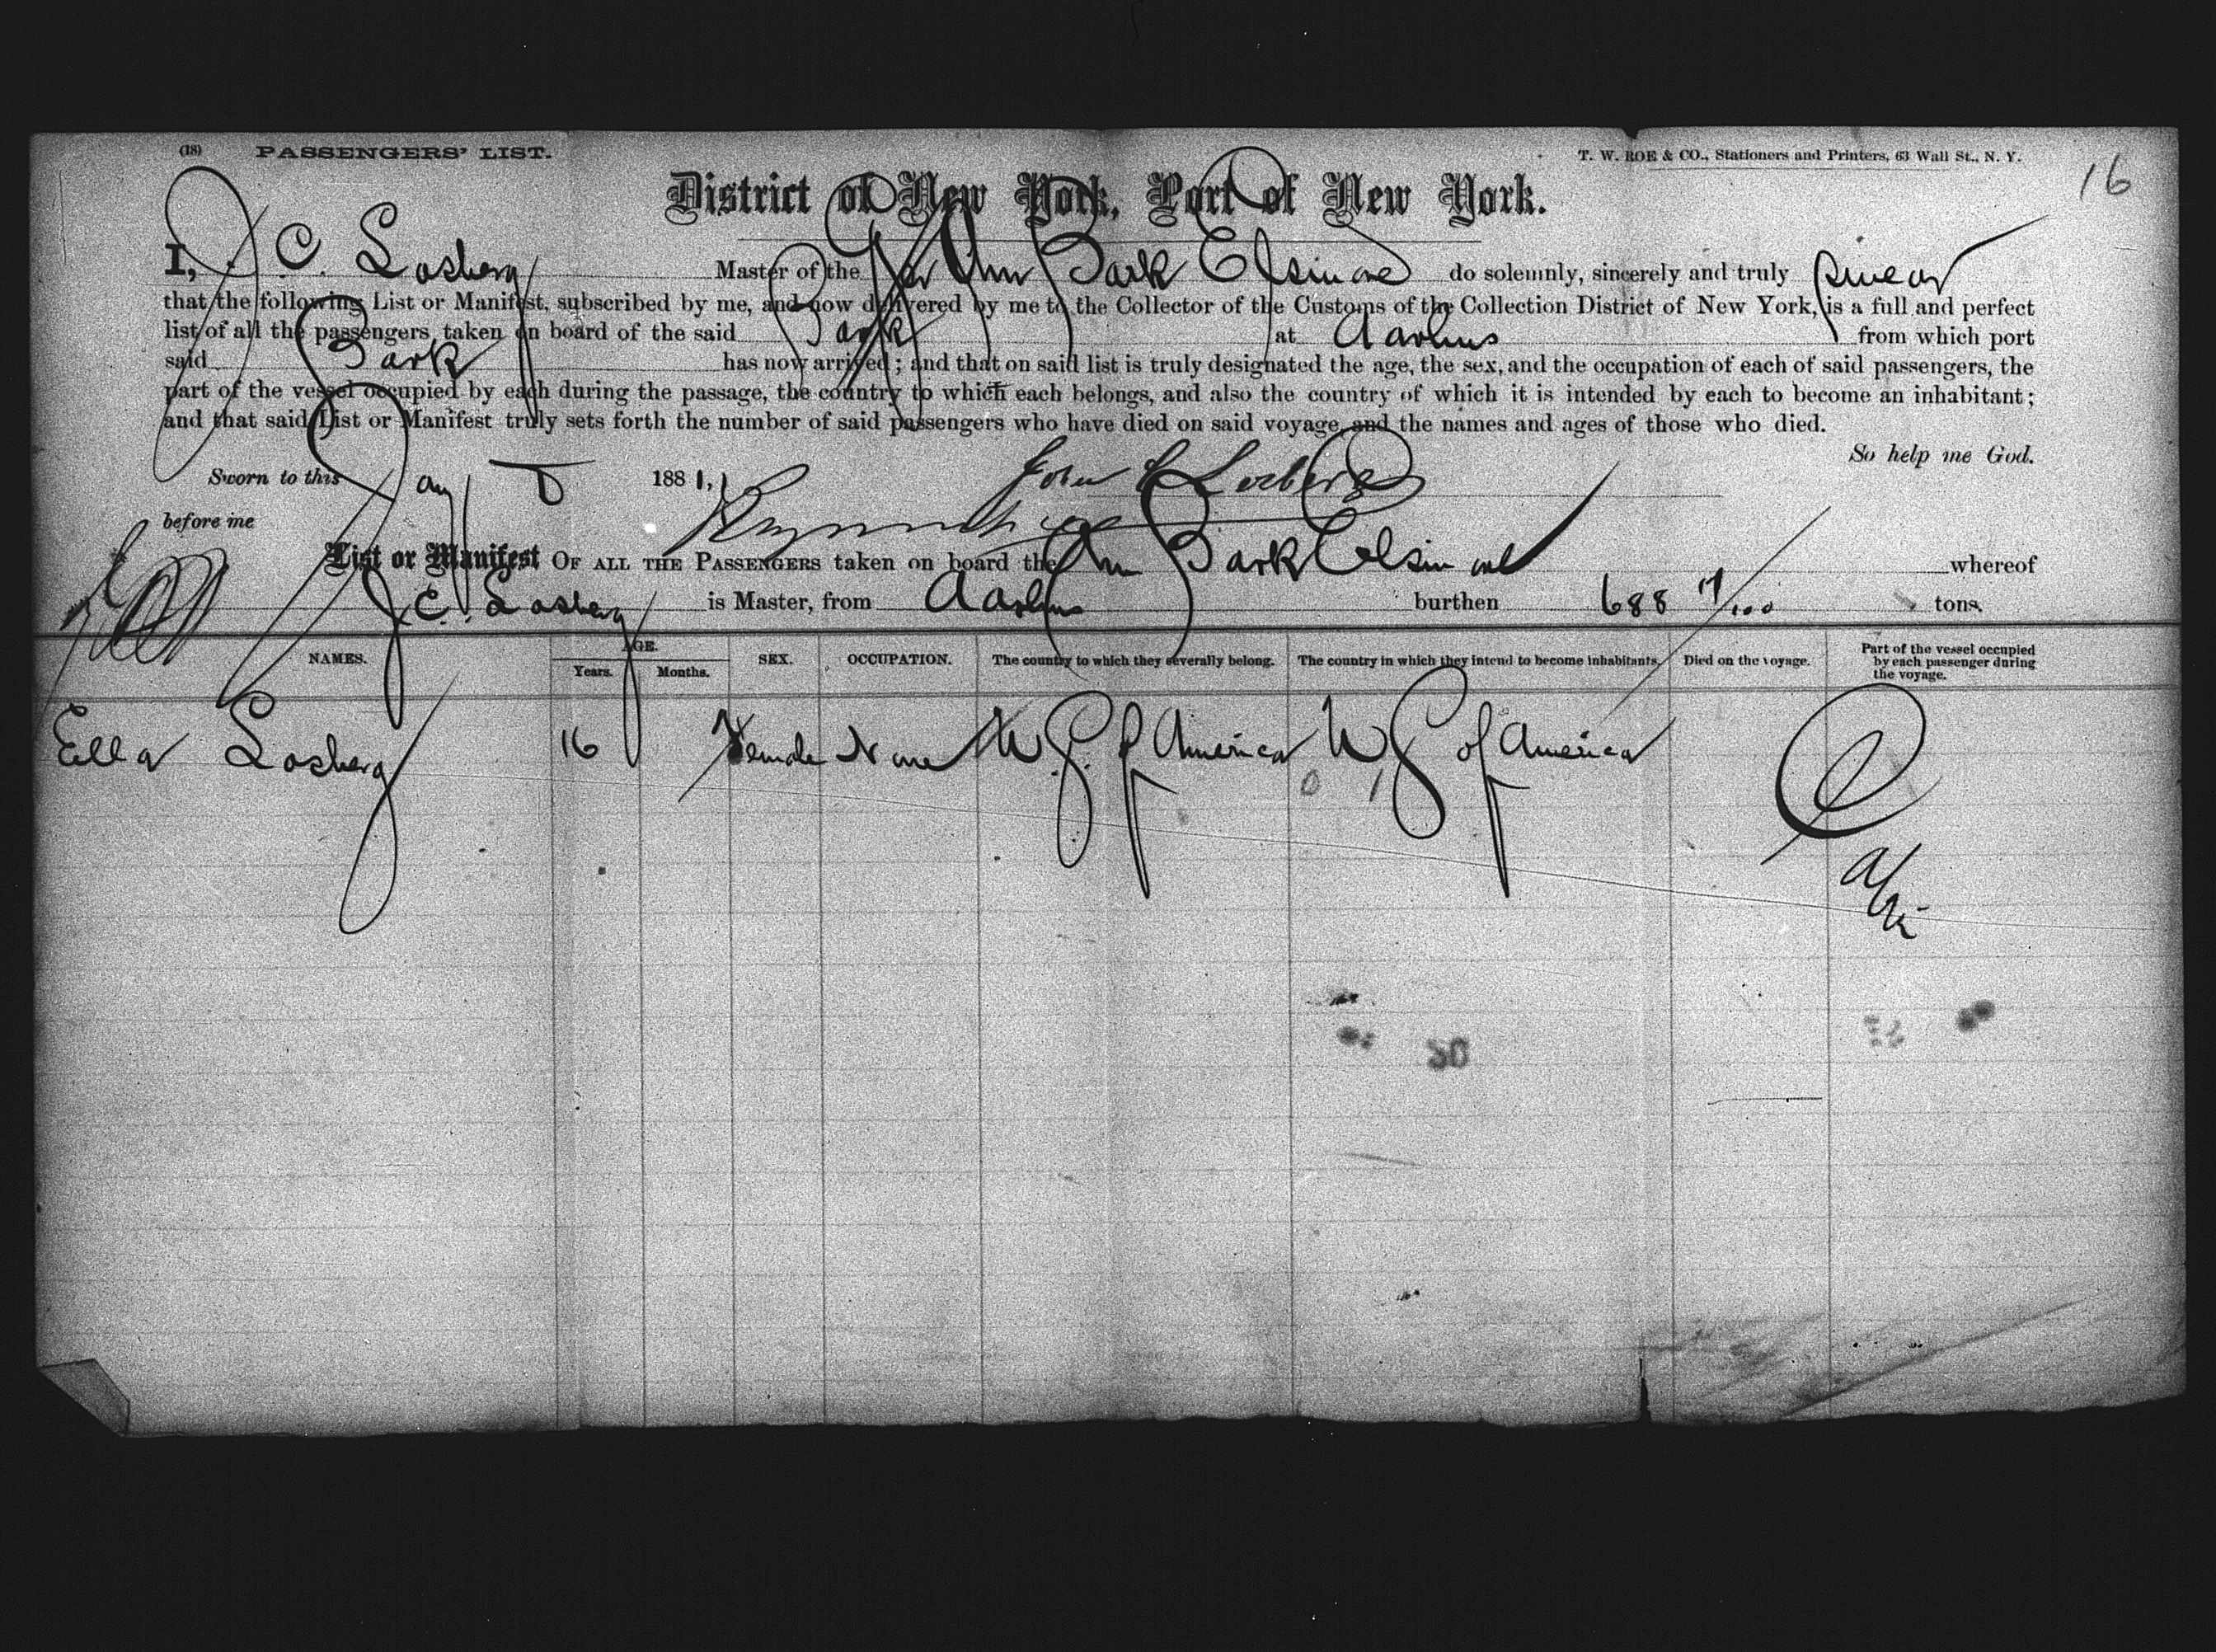 (18) PASSENGERS' LIST. T. W. ROE & CO., Stationers and Printers, 63 Wall St., N. Y. 16
District of New York, Port of New York.
I, J. C. Losberg Master of the Am Bark Elsinore do solemnly, sincerely and truly swear
that the following List or Manifest, subscribed by me, and now delivered by me to the Collector of the Customs of the Collection District of New York, is a full and perfect
list of all the passengers taken on board of the said Bark at Aarhus from which port
said Bark has now arrived; and that on said list is truly designated the age, the sex, and the occupation of each of said passengers, the
part of the vessel occupied by each during the passage, the country to which each belongs, and also the country of which it is intended by each to become an inhabitant;
and that said List or Manifest truly sets forth the number of said passengers who have died on said voyage, and the names and ages of those who died.
So help me God.
Sworn to this Jany 5 1881, John C Losberg
before me
List or Manifest OF ALL THE PASSENGERS taken on board the Am Bark Elsinore whereof
J. C. Losberg is Master, from Aarhus burthen 688 17/100 tons.
NAMES. AGE. Years. Months. SEX. OCCUPATION. The country to which they severally belong. The country in which they intend to become inhabitants. Died on the voyage. Part of the vessel occupied by each passenger during the voyage.
Ella Losberg 16 Female None U. S. of America U S of America
0 1